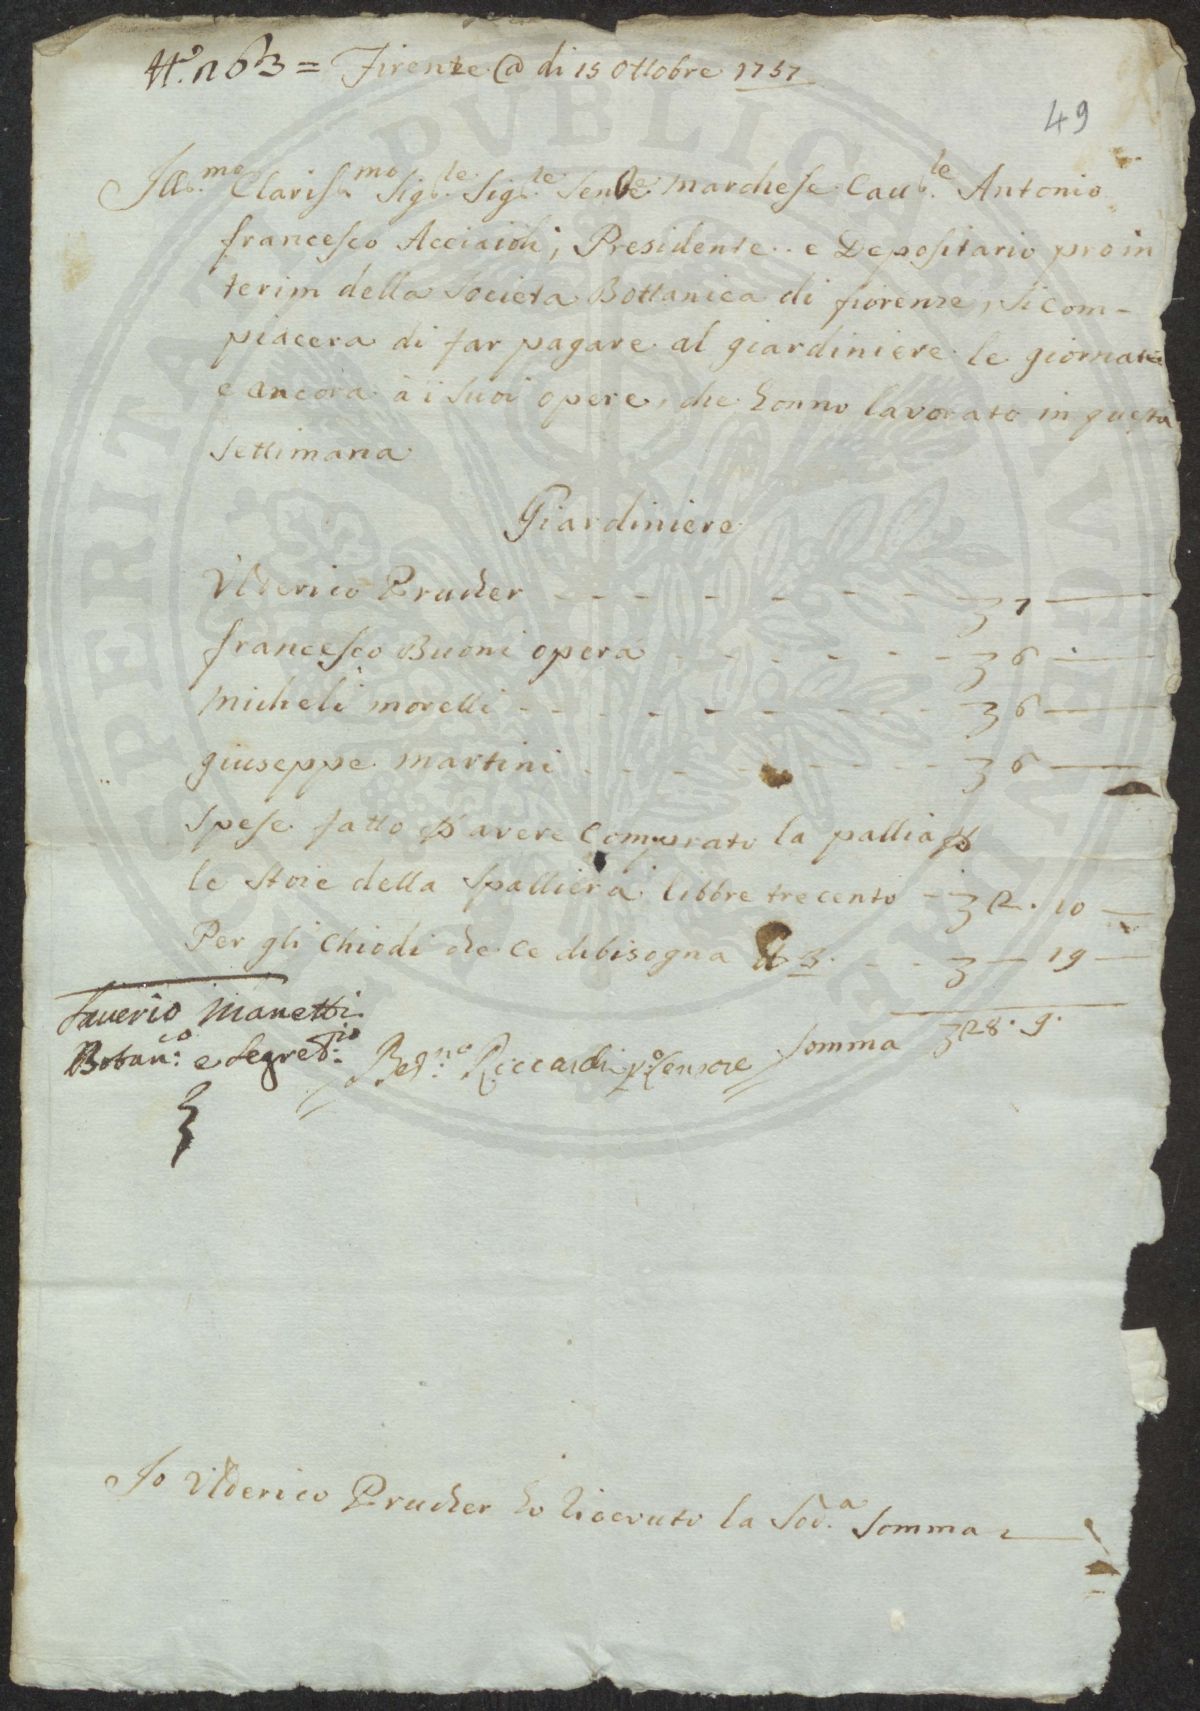 N.° 263 = Firenze @ di 15 Ottobre 1757
49
Ill.mo Claris.mo Sig.le Sig.le Sen.le Marchese Cau.le Antonio
francesco Acciaioli, Presidente e Depositario pro in
terim della Societa Bottanica di fiorenze, si com-
piacera di far pagare al giardiniere le giornate
e ancora à i suoi opere, che honno lavorato in questa
settimana
Giardiniere
Ulderico Prucher 7
francesco Buoni opera 6
Micheli morelli 6
giuseppe martini 6
Spese fatto p avere Comprato la pallia p
le stoie della Spalliera libbre trecento 2. 10
Per gli Chiodi che ce dibisogna 3. — 19
Somma 28. 9.
Saverio Manetti
Botan:co e Segret:rio
Bed:no Riccardi p.° Censore
Io Ulderico Prucher ho riceuuto la Sod.a Somma
SPERITAT PVBLICAE